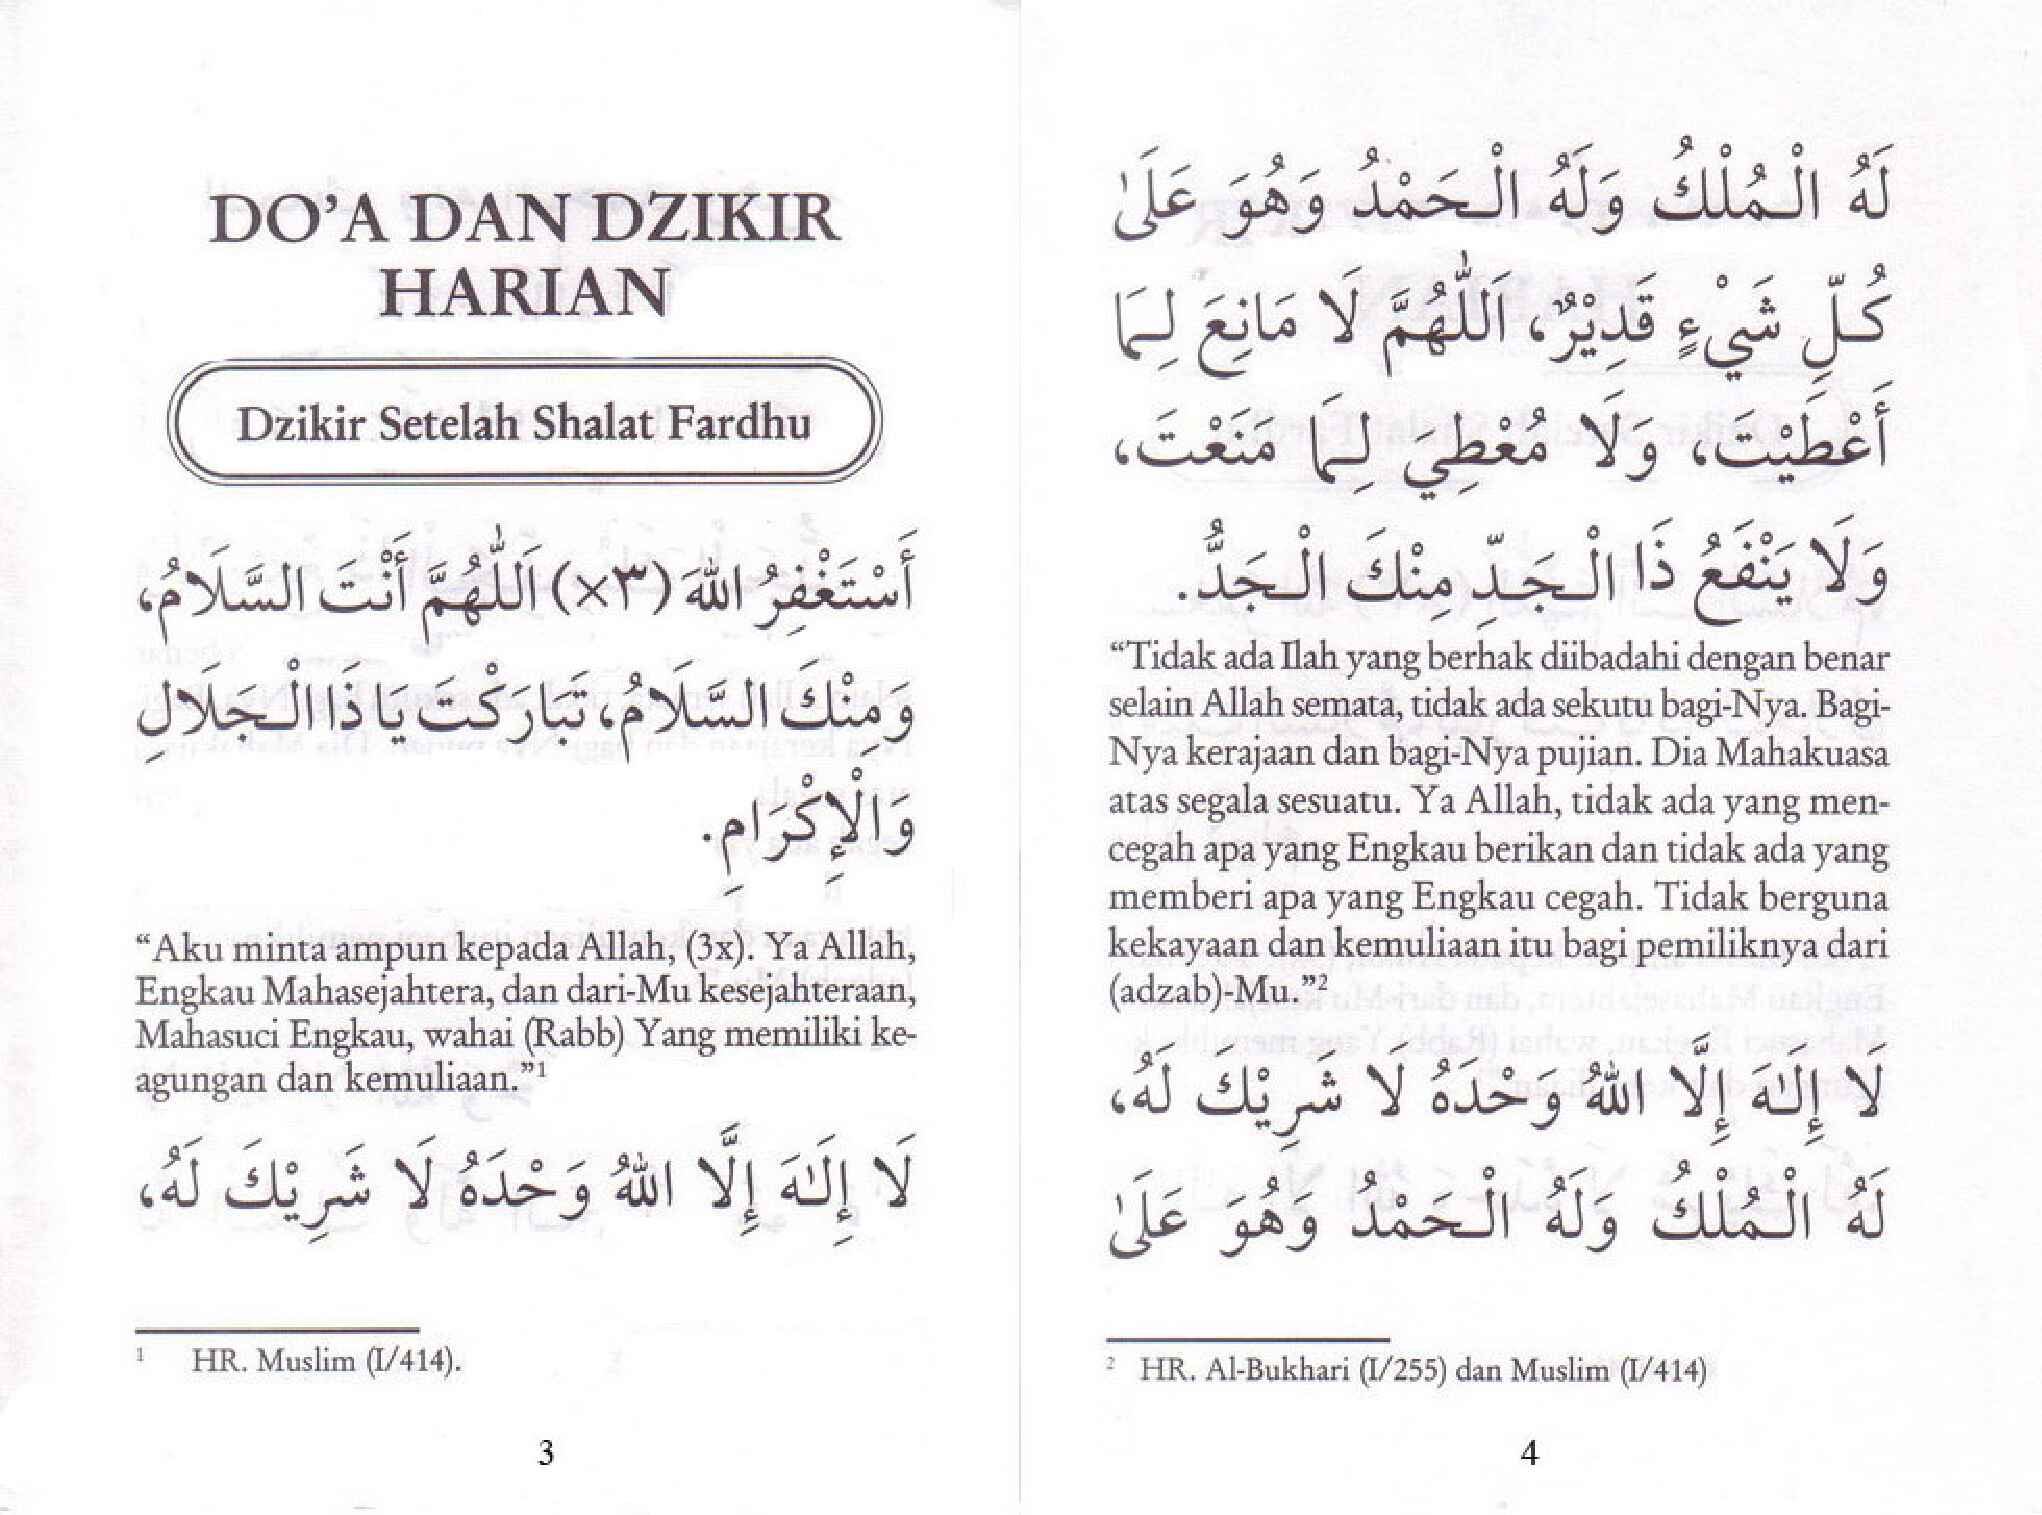 DO’A DAN DZIKIR
HARIAN
Dzikir Setelah Shalat Fardhu
أَسْتَغْفِرُ اللهَ (٣×) اَللّٰهُمَّ أَنْتَ السَّلَامُ،
وَمِنْكَ السَّلَامُ، تَبَارَكْتَ يَا ذَا الْـجَلَالِ
وَالْإِكْرَامِ.
“Aku minta ampun kepada Allah, (3x). Ya Allah,
Engkau Mahasejahtera, dan dari-Mu kesejahteraan,
Mahasuci Engkau, wahai (Rabb) Yang memiliki ke-
agungan dan kemuliaan.”¹
لَا إِلٰـهَ إِلَّا اللهُ وَحْدَهُ لَا شَرِيْكَ لَهُ،
¹ HR. Muslim (I/414).
3
لَهُ الْـمُلْكُ وَلَهُ الْـحَمْدُ وَهُوَ عَلَىٰ
كُـلِّ شَيْءٍ قَدِيْرٌ، اَللّٰهُمَّ لَا مَانِعَ لِـمَا
أَعْطَيْتَ، وَلَا مُعْطِيَ لِـمَا مَنَعْتَ،
وَلَا يَنْفَعُ ذَا الْـجَـدِّ مِنْكَ الْـجَدُّ.
“Tidak ada Ilah yang berhak diibadahi dengan benar
selain Allah semata, tidak ada sekutu bagi-Nya. Bagi-
Nya kerajaan dan bagi-Nya pujian. Dia Mahakuasa
atas segala sesuatu. Ya Allah, tidak ada yang men-
cegah apa yang Engkau berikan dan tidak ada yang
memberi apa yang Engkau cegah. Tidak berguna
kekayaan dan kemuliaan itu bagi pemiliknya dari
(adzab)-Mu.”²
لَا إِلٰـهَ إِلَّا اللهُ وَحْدَهُ لَا شَرِيْكَ لَهُ،
لَهُ الْـمُلْكُ وَلَهُ الْـحَمْدُ وَهُوَ عَلَىٰ
² HR. Al-Bukhari (I/255) dan Muslim (I/414)
4